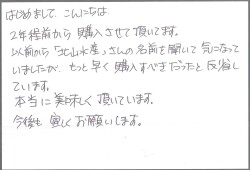 はじめまして、こんにちは
2年程前から購入させて頂いてます。
以前から「北山水産」さんの名前を聞いて気になって
いましたが、もっと早く購入すべきだったと反省し
ています。
本当に美味しく頂いています。
今後も宜しくお願いします。